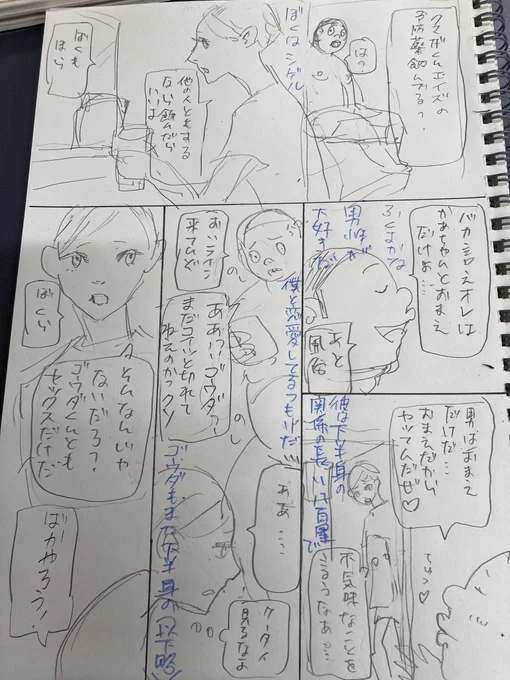 クマさんエイズの
予防薬飲んでる?
はっ
ぼくはシゲル
他の人ともする
なら飲んだら
いいよ
ぼくも
ほら
バカ言えオレは
かあちゃんとおまえ
だけよ…
あと
風俗
男性が
大好きだ
男はおまえ
だけだ…
おまえだから
ヤッてんだぜ♡
ちゅっ♡
彼は下半身の
関係の長い八百屋で
不気味なことを
言うなあっ…
僕と恋愛してるつもりだ…
おいライン
来てんぞ
ああっ!!ゴウダァ?
まだコイツと切れて
ねえのかっクソ
のし
ああ…
ケータイ
見るなよ
ゴウダもまた下半身の(以下略)
ぼくい
そんなんじゃ
ないだろ?
ゴウダくんとも
セックスだけだ
ばかやろう!